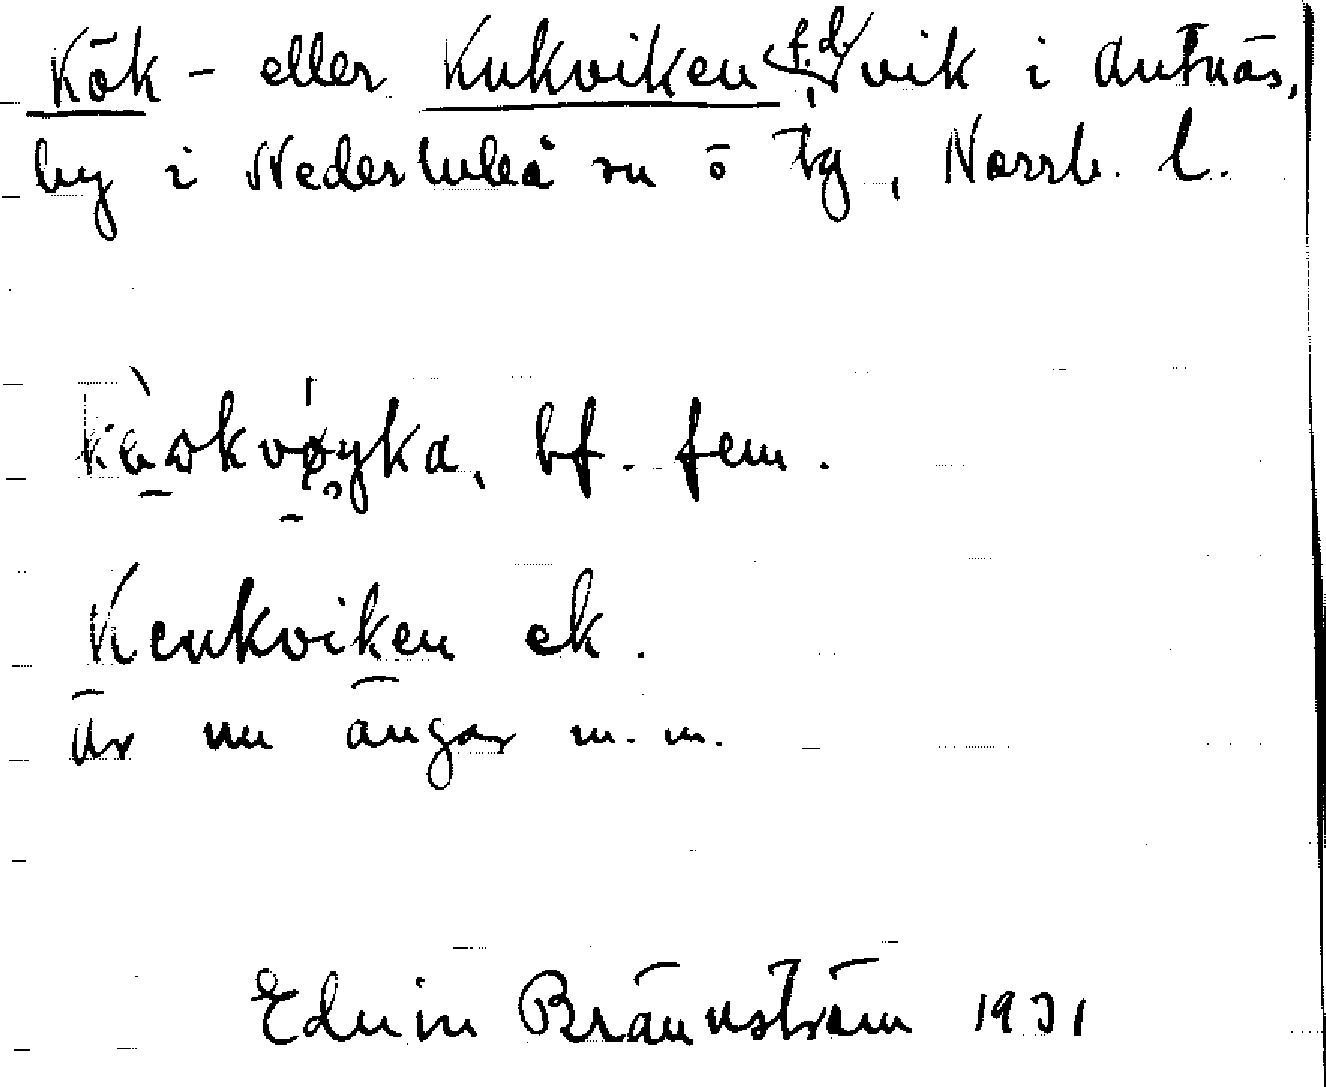 Kök- eller Kukviken, f.d. vik i Antnäs,
by i Nederluleå sn o tg, Norrb. l.
bf. fem.
Keukviken ek.
är nu ängar m.m.
Edvin Brännström 1931